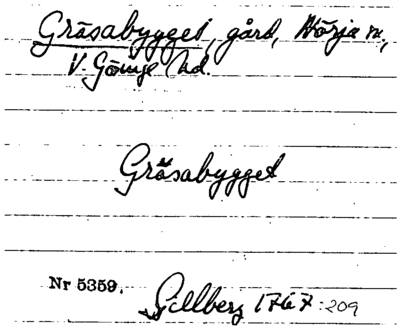 Gräsabygget, gård, Hörja sn,
V. Göinge hd.
Gräsabygget
Nr 5359.
Gillberg 1767:209